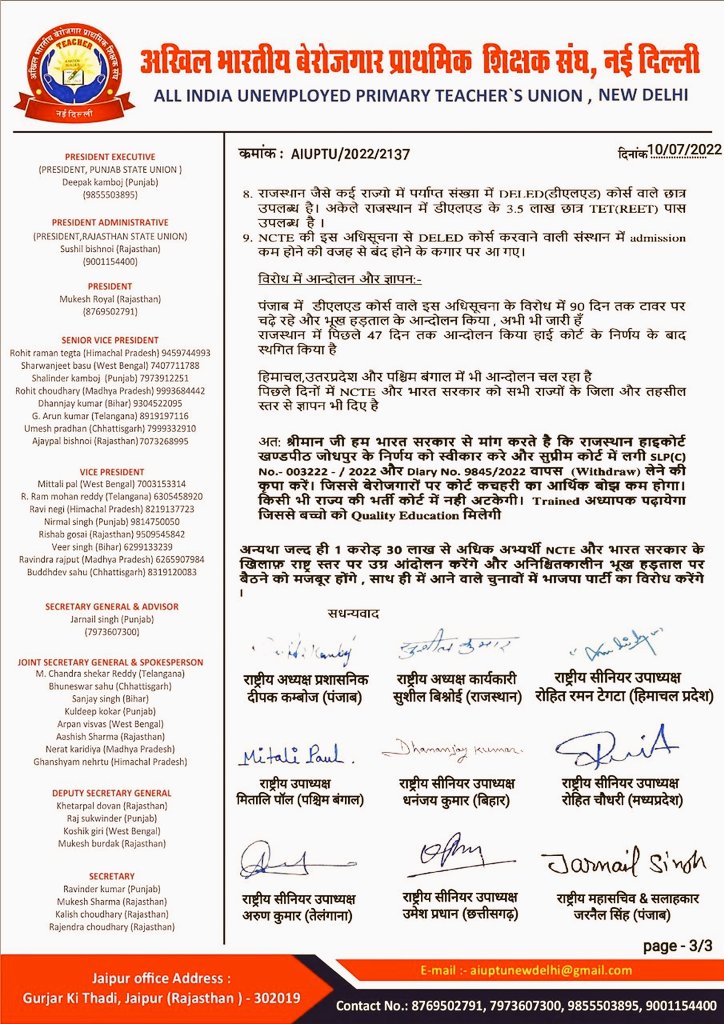 अखिल भारतीय बेरोजगार प्राथमिक शिक्षक संघ
TEACHER
नई दिल्ली
अखिल भारतीय बेरोजगार प्राथमिक शिक्षक संघ, नई दिल्ली
ALL INDIA UNEMPLOYED PRIMARY TEACHER`S UNION , NEW DELHI
PRESIDENT EXECUTIVE
(PRESIDENT, PUNJAB STATE UNION )
Deepak kamboj (Punjab)
(9855503895)
PRESIDENT ADMINISTRATIVE
(PRESIDENT,RAJASTHAN STATE UNION)
Sushil bishnoi (Rajasthan)
(9001154400)
PRESIDENT
Mukesh Royal (Rajasthan)
(8769502791)
SENIOR VICE PRESIDENT
Rohit raman tegta (Himachal Pradesh) 9459744993
Sharwanjeet basu (West Bengal) 7407711788
Shalinder kamboj (Punjab) 7973912251
Rohit choudhary (Madhya Pradesh) 9993684442
Dhannjay kumar (Bihar) 9304522095
G. Arun kumar (Telangana) 8919197116
Umesh pradhan (Chhattisgarh) 7999332910
Ajaypal bishnoi (Rajasthan) 7073268995
VICE PRESIDENT
Mittali pal (West Bengal) 7003153314
R. Ram mohan reddy (Telangana) 6305458920
Ravi negi (Himachal Pradesh) 8219137723
Nirmal singh (Punjab) 9814750050
Rishab gosai (Rajasthan) 9509545842
Veer singh (Bihar) 6299133239
Ravindra rajput (Madhya Pradesh) 6265907984
Buddhdev sahu (Chhattisgarh) 8319120083
SECRETARY GENERAL & ADVISOR
Jarnail singh (Punjab)
(7973607300)
JOINT SECRETARY GENERAL & SPOKESPERSON
M. Chandra shekar Reddy (Telangana)
Bhuneswar sahu (Chhattisgarh)
Sanjay singh (Bihar)
Kuldeep kokar (Punjab)
Arpan visvas (West Bengal)
Aashish Sharma (Rajasthan)
Nerat karidiya (Madhya Pradesh)
Ghanshyam nehrtu (Himachal Pradesh)
DEPUTY SECRETARY GENERAL
Khetarpal dovan (Rajasthan)
Raj sukwinder (Punjab)
Koshik giri (West Bengal)
Mukesh burdak (Rajasthan)
SECRETARY
Ravinder kumar (Punjab)
Mukesh Sharma (Rajasthan)
Kalish choudhary (Rajasthan)
Rajendra choudhary (Rajasthan)
क्रमांक : AIUPTU/2022/2137
दिनांक 10/07/2022
8. राजस्थान जैसे कई राज्यो में पर्याप्त संख्या में DELED(डीएलएड) कोर्स वाले छात्र
उपलब्ध है। अकेले राजस्थान में डीएलएड के 3.5 लाख छात्र TET(REET) पास
उपलब्ध है ।
9. NCTE की इस अधिसूचना से DELED कोर्स करवाने वाली संस्थान में admission
कम होने की वजह से बंद होने के कगार पर आ गए।
विरोध में आन्दोलन और ज्ञापन:-
पंजाब में डीएलएड कोर्स वाले इस अधिसूचना के विरोध में 90 दिन तक टावर पर
चढ़े रहे और भूख हड़ताल के आन्दोलन किया , अभी भी जारी हैं
राजस्थान में पिछले 47 दिन तक आन्दोलन किया हाई कोर्ट के निर्णय के बाद
स्थगित किया है
हिमाचल,उतरप्रदेश और पश्चिम बंगाल में भी आन्दोलन चल रहा है
पिछले दिनों में NCTE और भारत सरकार को सभी राज्यों के जिला और तहसील
स्तर से ज्ञापन भी दिए है
अत: श्रीमान जी हम भारत सरकार से मांग करते है कि राजस्थान हाइकोर्ट
खण्डपीठ जोधपुर के निर्णय को स्वीकार करे और सुप्रीम कोर्ट में लगी SLP(C)
No.- 003222 - / 2022 और Diary No. 9845/2022 वापस (Withdraw) लेने की
कृपा करें। जिससे बेरोजगारों पर कोर्ट कचहरी का आर्थिक बोझ कम होगा।
किसी भी राज्य की भर्ती कोर्ट में नही अटकेगी। Trained अध्यापक पढ़ायेगा
जिससे बच्चो को Quality Education मिलेगी
अन्यथा जल्द ही 1 करोड़ 30 लाख से अधिक अभ्यर्थी NCTE और भारत सरकार के
खिलाफ़ राष्ट्र स्तर पर उग्र आंदोलन करेंगे और अनिश्चितकालीन भूख हड़ताल पर
बैठने को मजबूर होंगे , साथ ही में आने वाले चुनावों में भाजपा पार्टी का विरोध करेंगे
।
सधन्यवाद
सुशील कुमार
राष्ट्रीय अध्यक्ष प्रशासनिक
दीपक कम्बोज (पंजाब)
राष्ट्रीय अध्यक्ष कार्यकारी
सुशील बिश्नोई (राजस्थान)
राष्ट्रीय सीनियर उपाध्यक्ष
रोहित रमन टेगटा (हिमाचल प्रदेश)
Mitali Paul.
Dhananjay kumar.
राष्ट्रीय उपाध्यक्ष
मितालि पॉल (पश्चिम बंगाल)
राष्ट्रीय सीनियर उपाध्यक्ष
धनंजय कुमार (बिहार)
राष्ट्रीय सीनियर उपाध्यक्ष
रोहित चौधरी (मध्यप्रदेश)
Jarnail Singh
राष्ट्रीय सीनियर उपाध्यक्ष
अरुण कुमार (तेलंगाना)
राष्ट्रीय सीनियर उपाध्यक्ष
उमेश प्रधान (छत्तीसगढ़)
राष्ट्रीय महासचिव & सलाहकार
जरनैल सिंह (पंजाब)
page - 3/3
Jaipur office Address :
Gurjar Ki Thadi, Jaipur (Rajasthan ) - 302019
E-mail :- aiuptunewdelhi@gmail.com
Contact No.: 8769502791, 7973607300, 9855503895, 9001154400